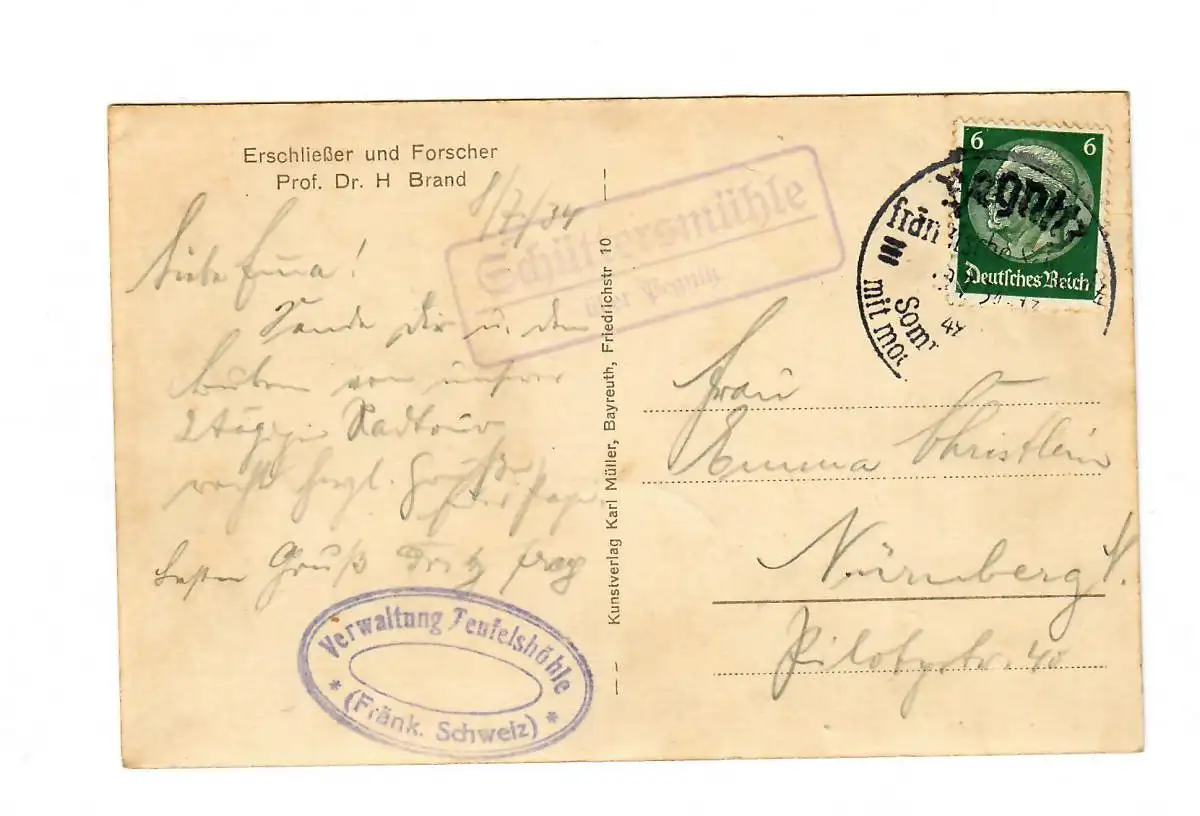 Erschließer und Forscher
Prof. Dr. H Brand
8/7/34
Schüttersmühle
über Pegnitz
Liebe Emma!
Sende Dir u. den
Buben von unserer
2 tägigen Radtour
recht herzl. Grüße
Papa
besten Gruß Fritz
Verwaltung Teufelshöhle
* (Fränk. Schweiz) *
Kunstverlag Karl Müller, Bayreuth, Friedrichstr 10
6 6
Deutsches Reich
Pegnitz
frän
mit mo
Frau
Emma Christlein
Nürnberg
Pilotystr. 40